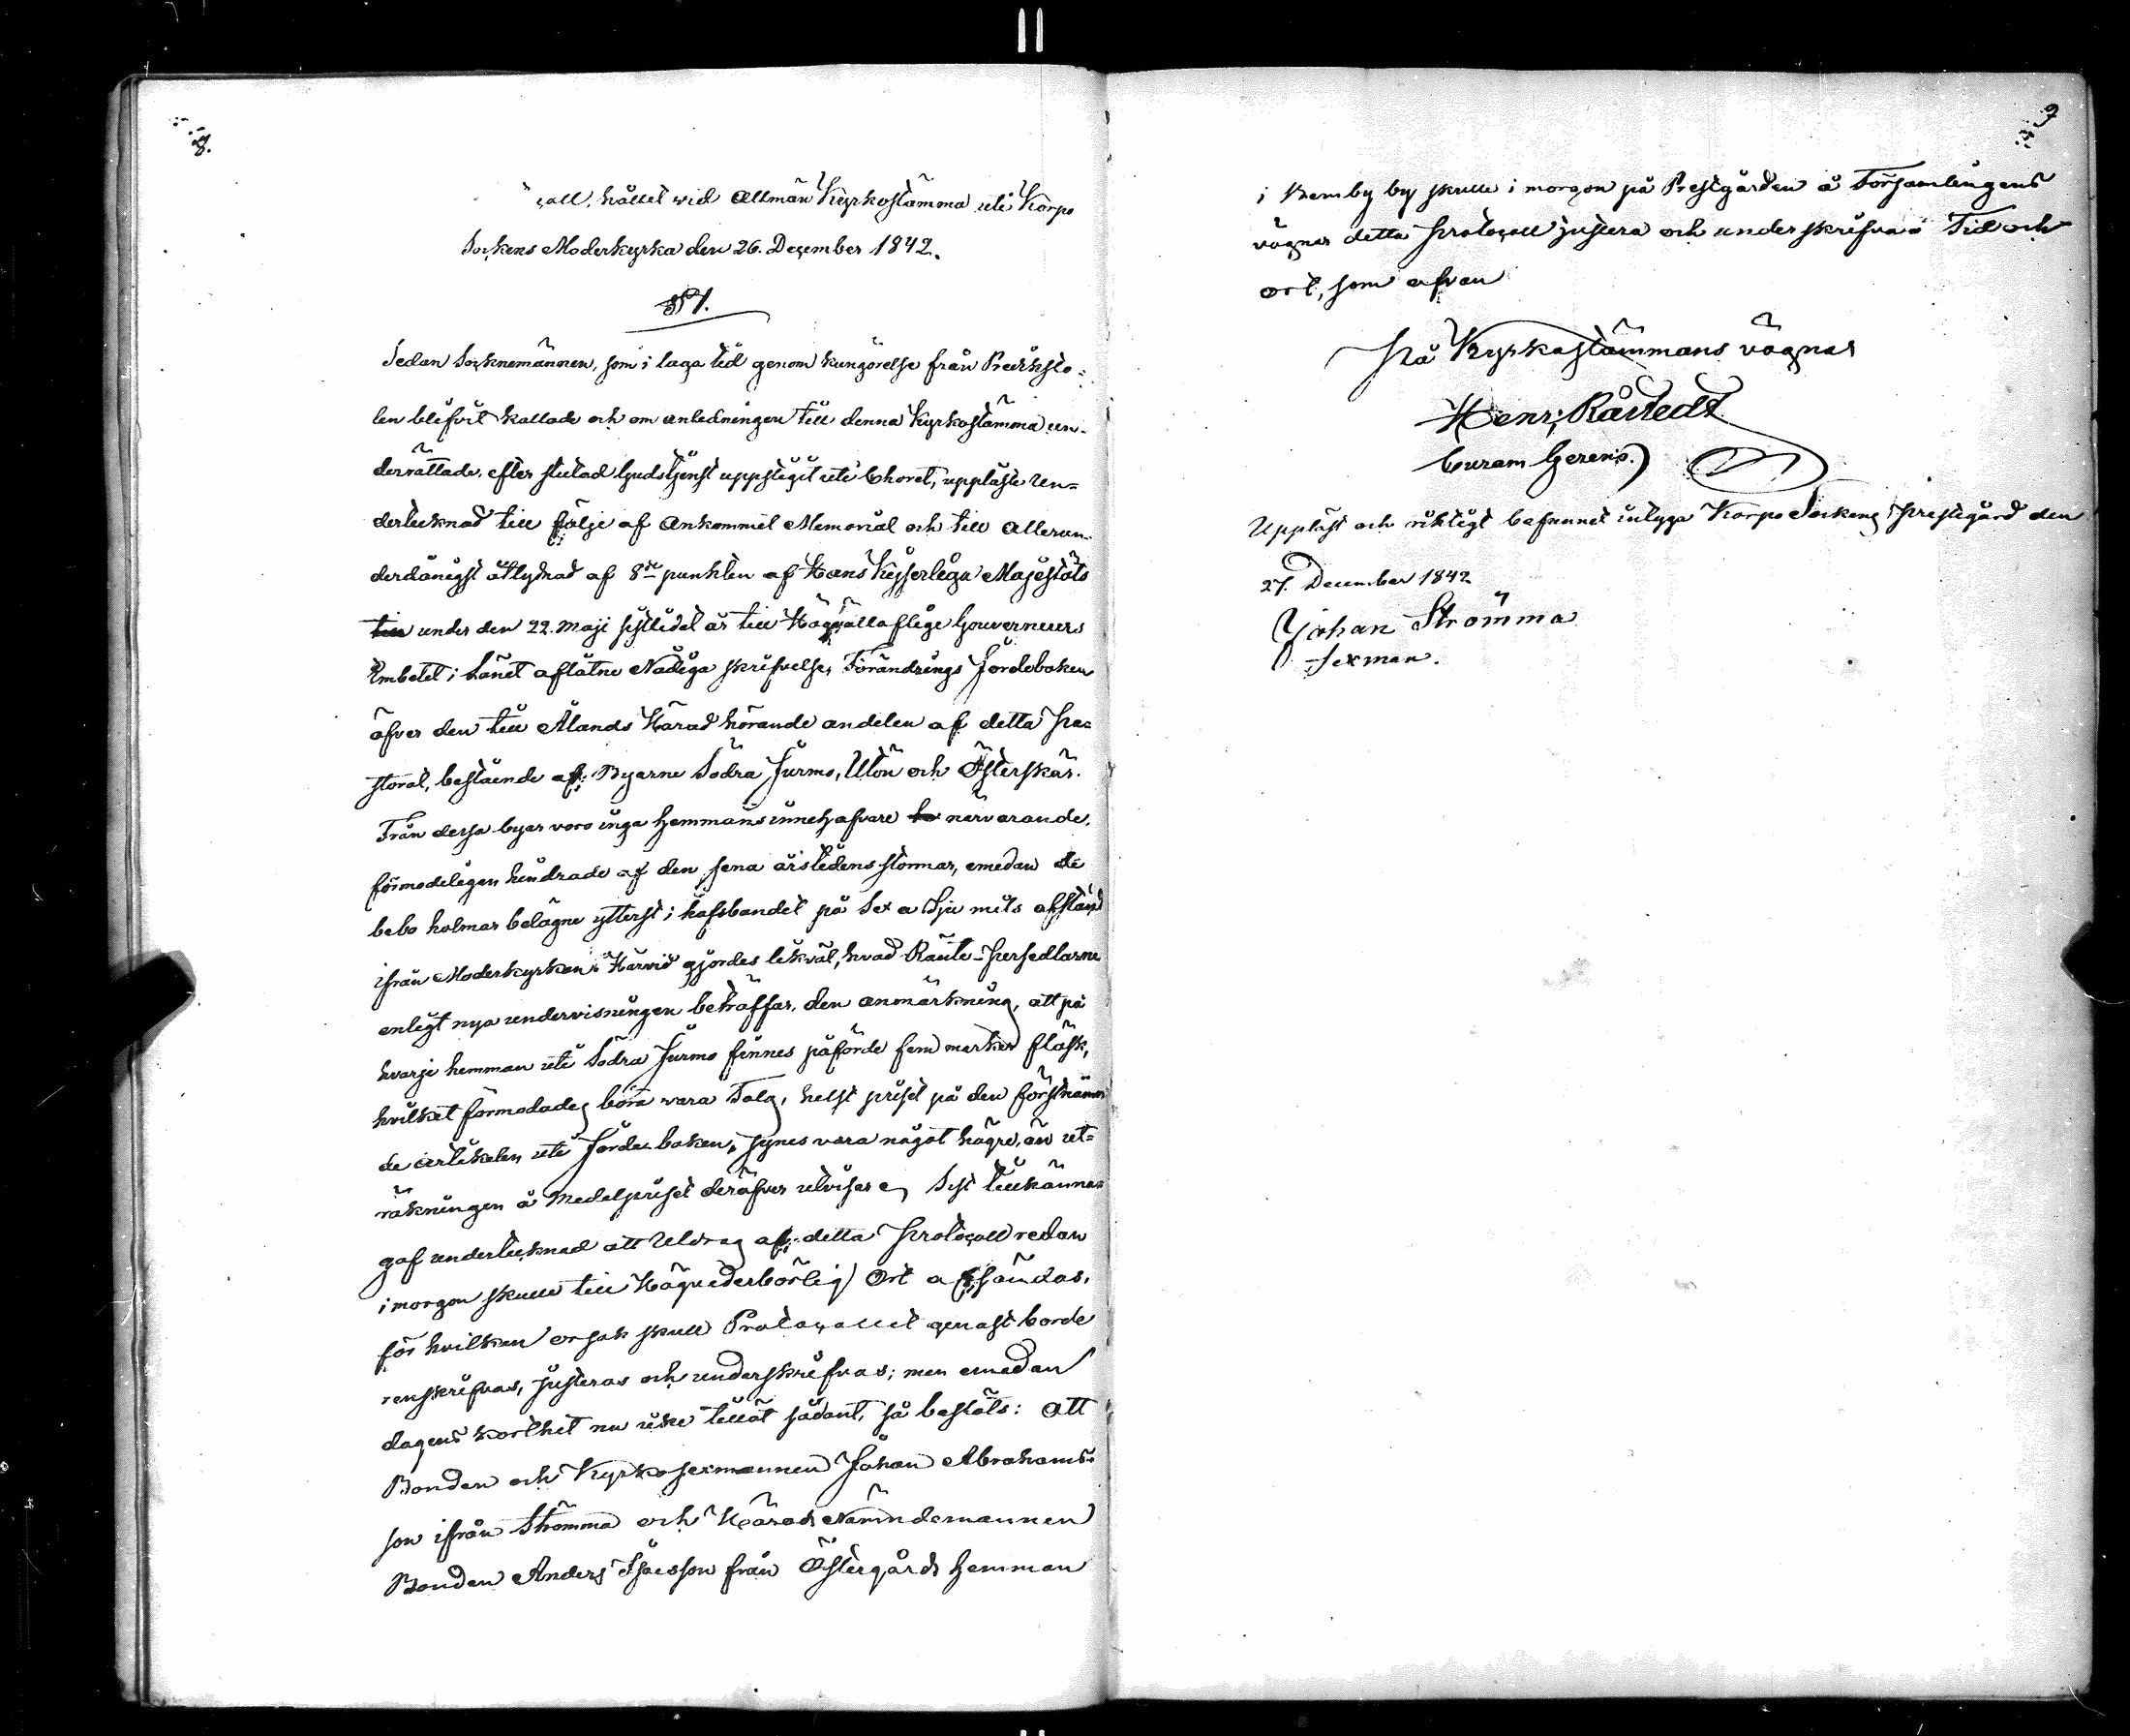 8.
coll, hållet wid Allmän Kyrkostämma uti Korpo
Sockens Moderkyrka den 26. December 1842.
§ 1.
Sedan Socknemännen, som i laga tid genom kungörelse från Prediksto-
len blifvit kallade och om anledningen till denna Kyrkostämma un-
derrättade, efter slutad Gudstjenst uppstigit uti Choret, uppläste Un-
dertecknad till följe af ankommit Memorial och till allerun-
derdånigst åtlydnad af 8de punkten af Hans Kejserliga Majestäts
till under den 22. Maji sistlidet år till Högvälloflige Gouverneurs
Embetet i Länet aflåtne Nådiga skrifvelse, Förändrings Jordeboken
öfver den till Ålands Härad hörande andelen af detta Pa-
storat, bestående af Byarne Södra Jurmo, Utön och Österskär.
Från dessa byar voro inga hemmans innehafvare ha närvarande,
förmodeligen hindrade af den sena årstidens stormar, emedan de
bebo holmar belägne ytterst i hafsbandet på Sex a Sju mils afstånd
ifrån Moderkyrkan. Härvid gjordes likväl, hvad Ränte-Persedlarne
enligt nya undervisningen beträffar, den anmärkning, att på
hvarje hemman uti Södra Jurmo finnes påförde fem marker fläsk,
hvilket förmodades böra vara Talg, helst priset på den förstnämn
de artikeln uti Jorde boken, synes vara något högre, än ut-
räkningen å Medelpriset deröfver utvisar. Sist tillkänna-
gaf undertecknad att Utdrag af detta Protocoll redan
i morgon skulle till Högvederbörlig Ort afsändas,
för hvilken orsak skull Protocollet genast borde
renskrifvas, justeras och underskrifvas; men emedan
dagens korthet nu icke tillät sådant, så beslöts: att
Bonden och Kyrkosexmannen Johan Abrahams-
son ifrån Strömma och Härads Nämndemannen
Bonden Anders Isacsson från Östergårds hemman
9
i Bemby by skulle i morgon på Prestgården å Församlingens
vägnar detta Protocoll justera och underskrifva. Tid och
ort, som ofvan
På Kyrkostämmans vägnar
Henr. Råstedt
Curam Gerens.
Uppläst och riktigt befunnet intyga Korpo Sockens Prestegård den
27. December 1842
Johan Strömma
Sexman.